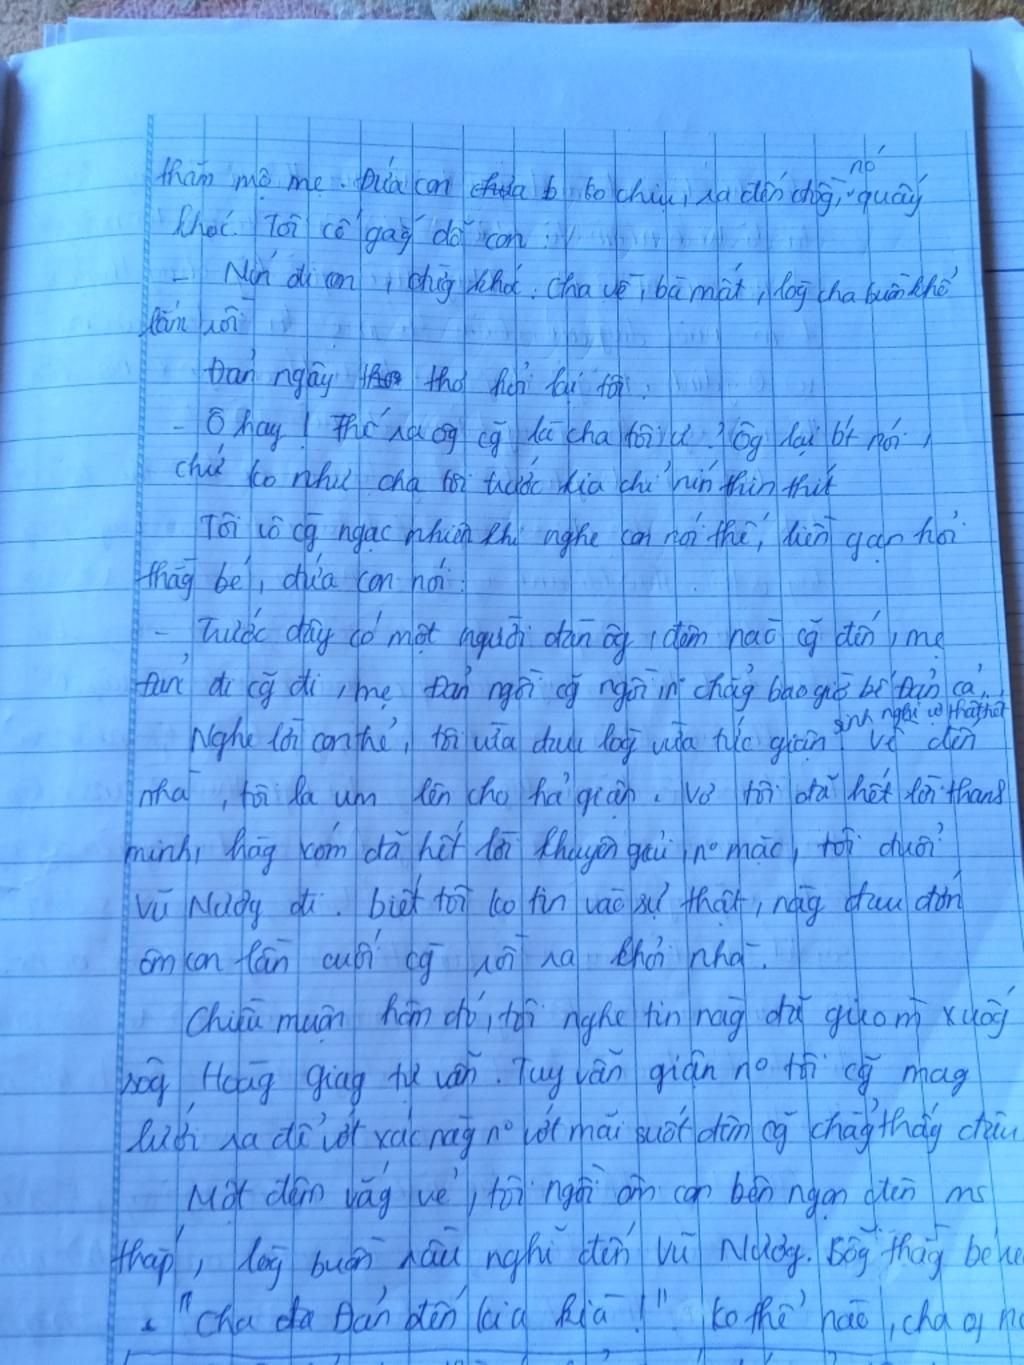 thăm mộ mẹ. Đứa con chưa b ko chịu, ra đến đồng, nó quấy
khóc. Tôi cố gắg dỗ con:
- Nín đi con, đừg khóc. Cha về, bà mất, lòg cha buồn khổ
lắm rồi
Đản ngây thơ hỏi lại tôi.
- Ô hay! Thế ra ôg cg là cha tôi ư? Ôg lại bt nói,
chứ ko như cha tôi trước kia chỉ nín thin thít
Tôi vô cg ngạc nhiên khi nghe con nói thế, liền gạn hỏi
thằg bé, đứa con nói:
- Trước đây có một người đàn ôg, đêm nào cg đến, mẹ
Đản đi cg đi, mẹ Đản ngồi cg ngồi, chẳg bao giờ bế Đản cả.
Nghe lời con kể, tôi vừa đau lòg vừa tức giận sinh nghi vợ thất tiết Về đến
nhà, tôi la um lên cho hả giận. Vợ tôi đã hết lời thanh
minh, hàg xóm đã hết lời khuyên giải, nº mặc, tôi đuổi
Vũ Nươg đi. biết tôi ko tin vào sự thật, nàg đau đớn
ôm con lần cuối cg rồi ra khỏi nhà.
Chiều muộn hôm đó, tôi nghe tin nàg đã gieo m xuốg
sôg Hoàg Giag tự vẫn. Tuy vẫn giận nº tôi cg mag
lưới ra để vớt xác nàg nº vớt mãi suốt đêm cg chẳg thấy đâu
Một đêm vắg vẻ, tôi ngồi ôm con bên ngọn đèn
thắp, lòg buồn rầu nghĩ đến Vũ Nươg. Bỗg thằg bé
- "Cha đã Đản đến kia kìa!". Ko thể nào, cha